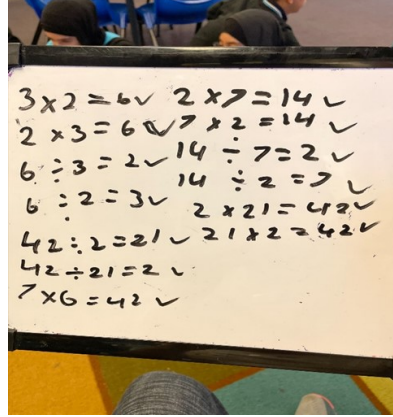 3 × 2 = 6 ✓
2 × 3 = 6 ✓
6 ÷ 3 = 2 ✓
6 ÷ 2 = 3 ✓
42 ÷ 2 = 21 ✓
42 ÷ 21 = 2 ✓
7 × 6 = 42 ✓
2 × 7 = 14 ✓
7 × 2 = 14 ✓
14 ÷ 7 = 2 ✓
14 ÷ 2 = 7 ✓
2 × 21 = 42 ✓
21 × 2 = 42 ✓